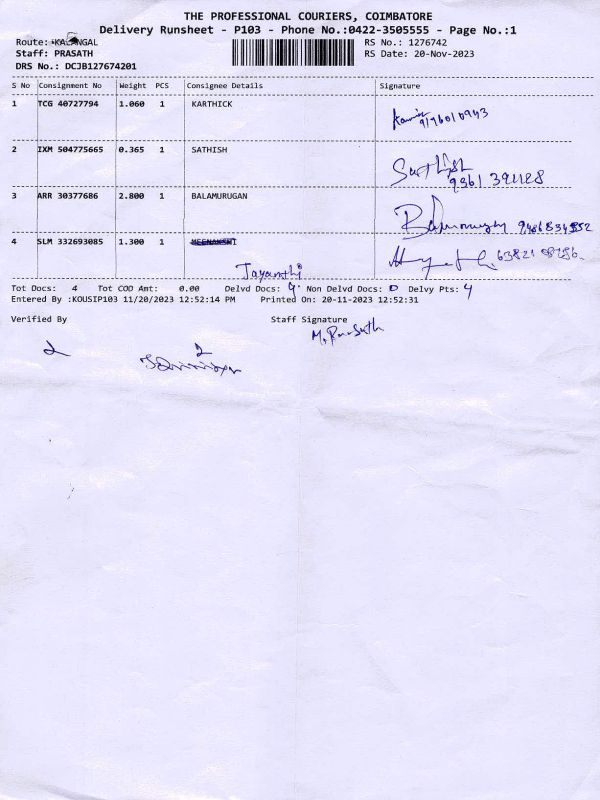 THE PROFESSIONAL COURIERS, COIMBATORE
Delivery Runsheet - P103 - Phone No.:0422-3505555 - Page No.:1
Route: KALANGAL RS No.: 1276742
Staff: PRASATH RS Date: 20-Nov-2023
DRS No.: DCJB127674201
S No Consignment No Weight PCS Consignee Details Signature
1 TCG 40727794 1.060 1 KARTHICK
2 IXM 504775665 0.365 1 SATHISH Sathish
3 ARR 30377686 2.800 1 BALAMURUGAN Balamurugan
4 SLM 332693085 1.300 1 MEENAKSHI
Jayanthi
Tot Docs: 4 Tot COD Amt: 0.00 Delvd Docs: 4 Non Delvd Docs: 0 Delvy Pts: 4
Entered By :KOUSIP103 11/20/2023 12:52:14 PM Printed On: 20-11-2023 12:52:31
Verified By Staff Signature
M. Prasath